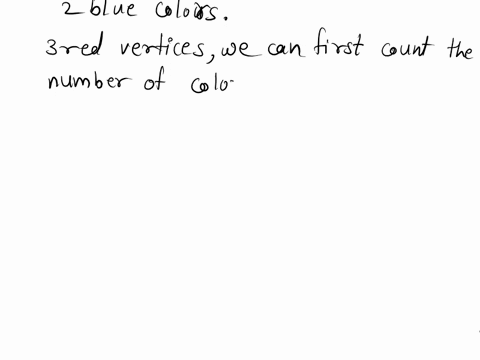 2 blue colors.
3 red vertices, we can first count the
number of colo